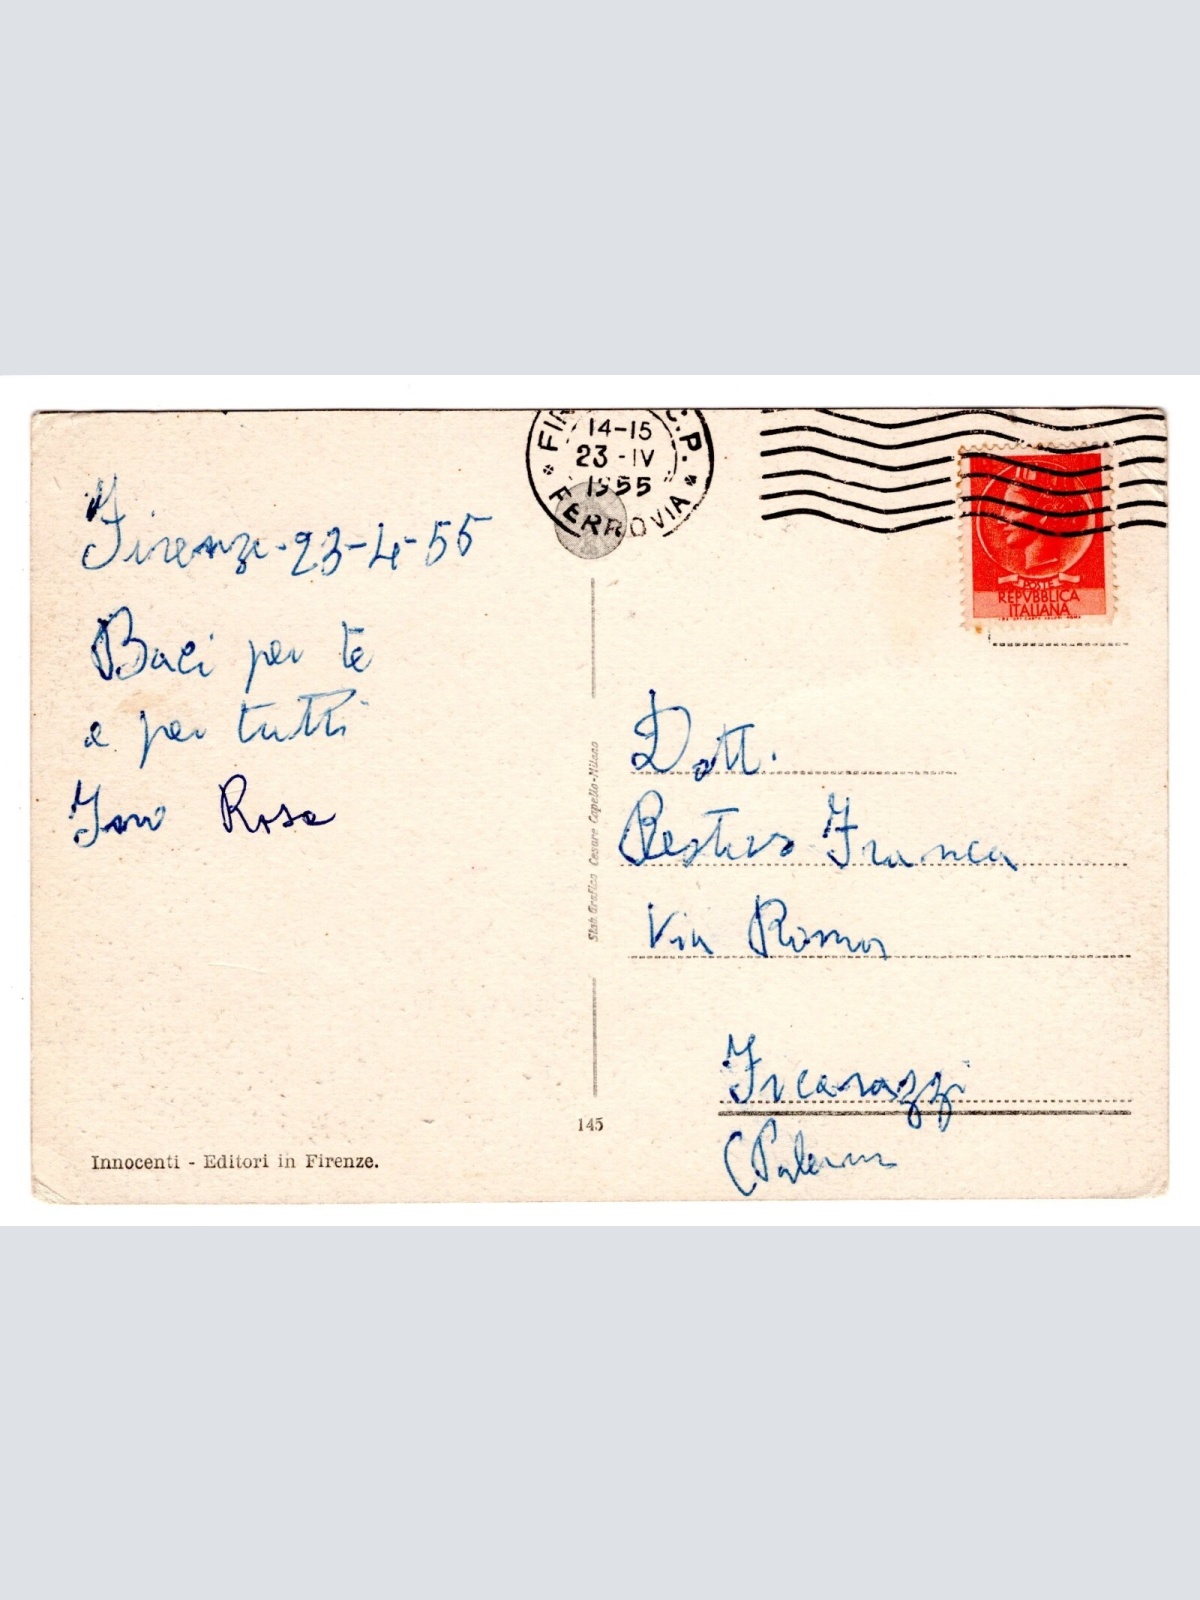 14-15
23-IV
1955
FERROVIA
C.P.
POSTE
REPVBBLICA
ITALIANA
Firenze-23-4-55
Baci per te
e per tutti
Rosa
Dott.
Restivo Franca
Via Roma
Ficarazzi
(Palermo
Stab. Grafico Cesare Capello-Milano
145
Innocenti - Editori in Firenze.